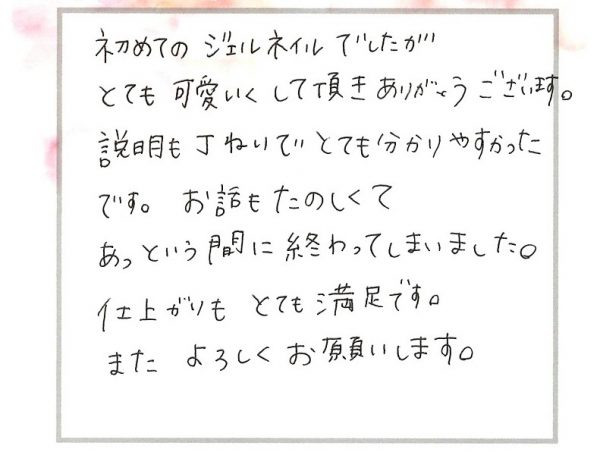 初めての ジェルネイル でしたが
とても 可愛いく して頂き ありがとうございます。
説明も 丁ねいで とても分かりやすかった
です。 お話も たのしくて
あっ という 間に 終わってしまいました。
仕上がりも とても 満足です。
また よろしく お願いします。